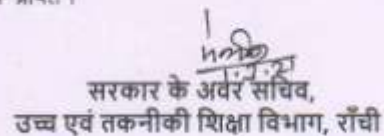 सरकार के अवर सचिव,
उच्च एवं तकनीकी शिक्षा विभाग, राँची